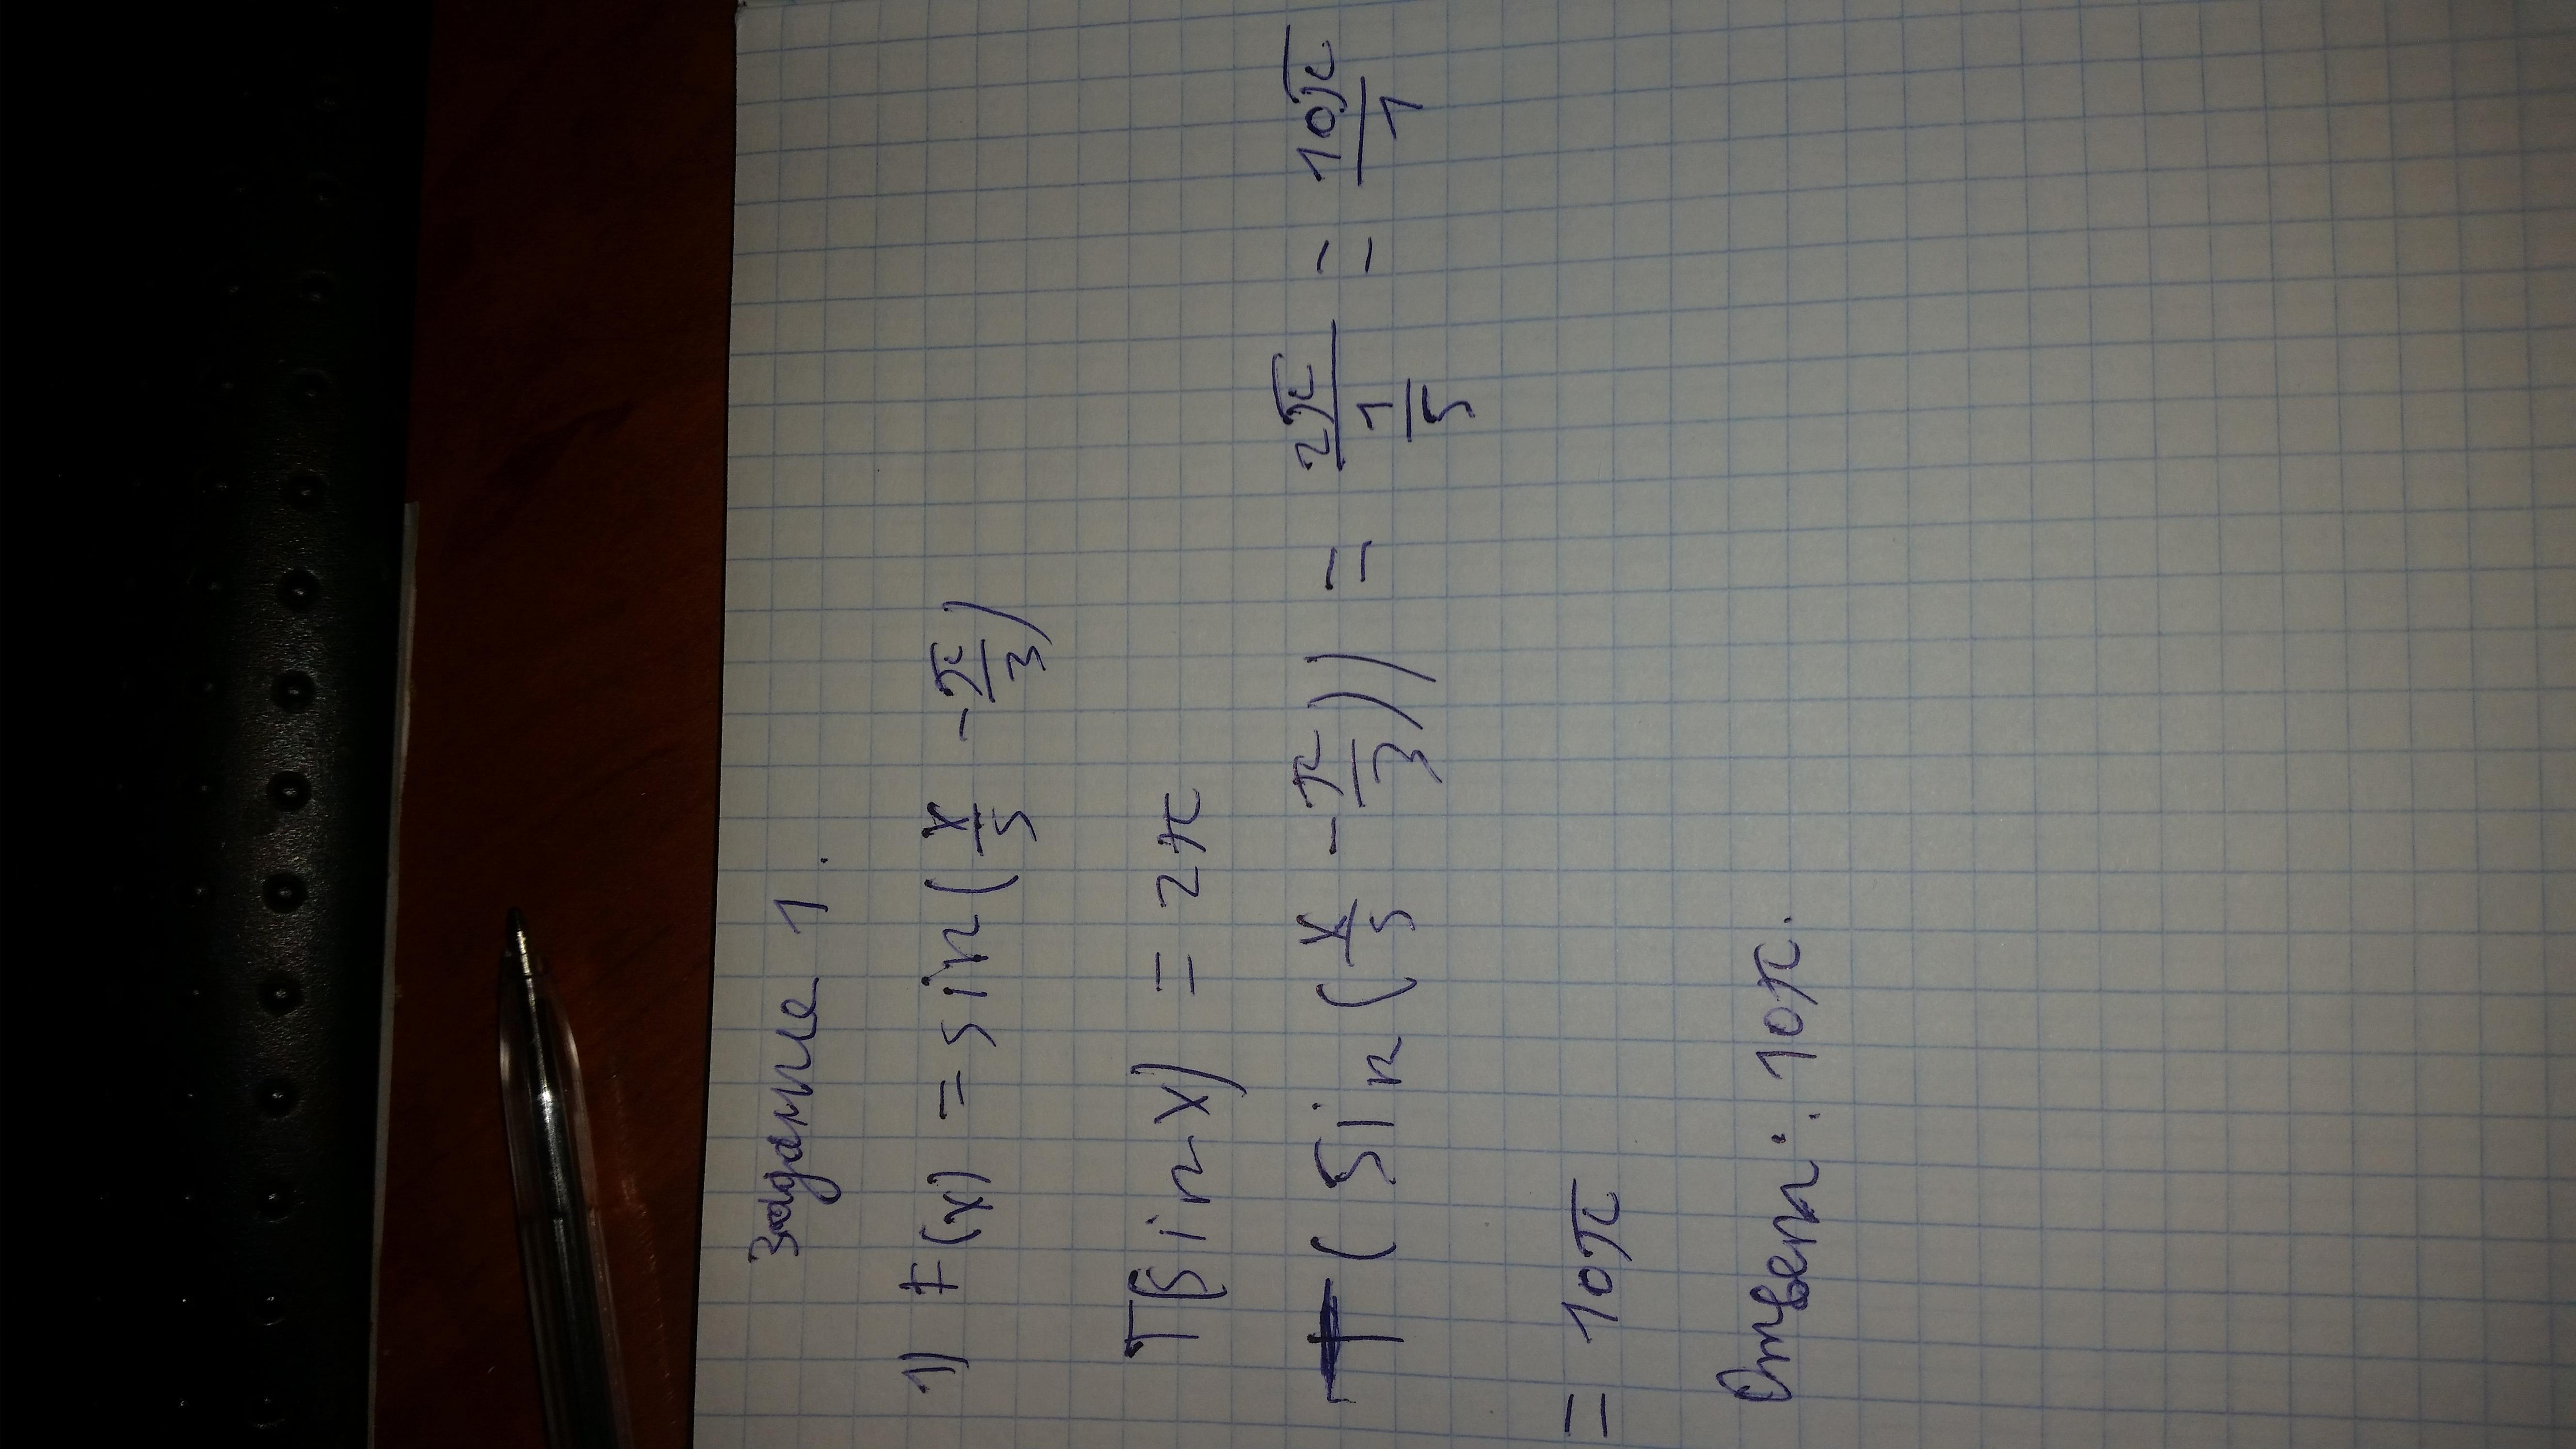 Задание 1.
1) f(x) = sin(x/5 - π/3)
T(sin x) = 2π
T(sin(x/5 - π/3)) = 2π/(1/5) = 10π/1
= 10π
Ответ: 10π.